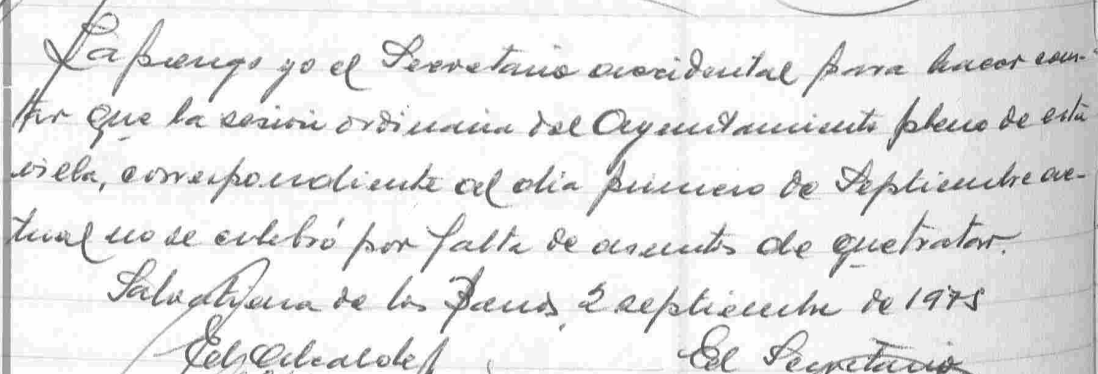 La pongo yo el Secretario accidental para hacer cons-
tar que la sesión ordinaria del Ayuntamiento pleno de esta
villa, correspondiente al dia primero de Septiembre ac-
tual no se celebró por falta de asuntos de que tratar.
Salvatierra de los Barros, 2 septiembre de 1975
El Alcalde
El Secretario